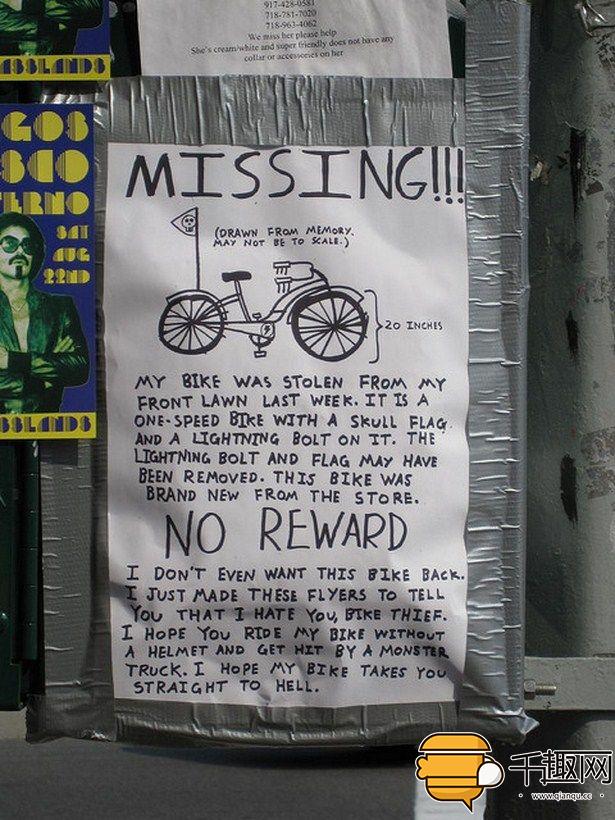 917-428-0581
718-781-7020
718-963-4062
We miss her please help
She's cream/white and super friendly does not have any
collar or accessories on her
ASSLANDS
GOS
SCO
ERNO
SAT
AUG
22ND
SSLANDS
MISSING!!!
(DRAWN FROM MEMORY.
MAY NOT BE TO SCALE.)
20 INCHES
MY BIKE WAS STOLEN FROM MY
FRONT LAWN LAST WEEK. IT IS A
ONE-SPEED BIKE WITH A SKULL FLAG
AND A LIGHTNING BOLT ON IT. THE
LIGHTNING BOLT AND FLAG MAY HAVE
BEEN REMOVED. THIS BIKE WAS
BRAND NEW FROM THE STORE.
NO REWARD
I DON'T EVEN WANT THIS BIKE BACK.
I JUST MADE THESE FLYERS TO TELL
YOU THAT I HATE YOU, BIKE THIEF.
I HOPE YOU RIDE MY BIKE WITHOUT
A HELMET AND GET HIT BY A MONSTER
TRUCK. I HOPE MY BIKE TAKES YOU
STRAIGHT TO HELL.
千趣网
www.qianqu.cc